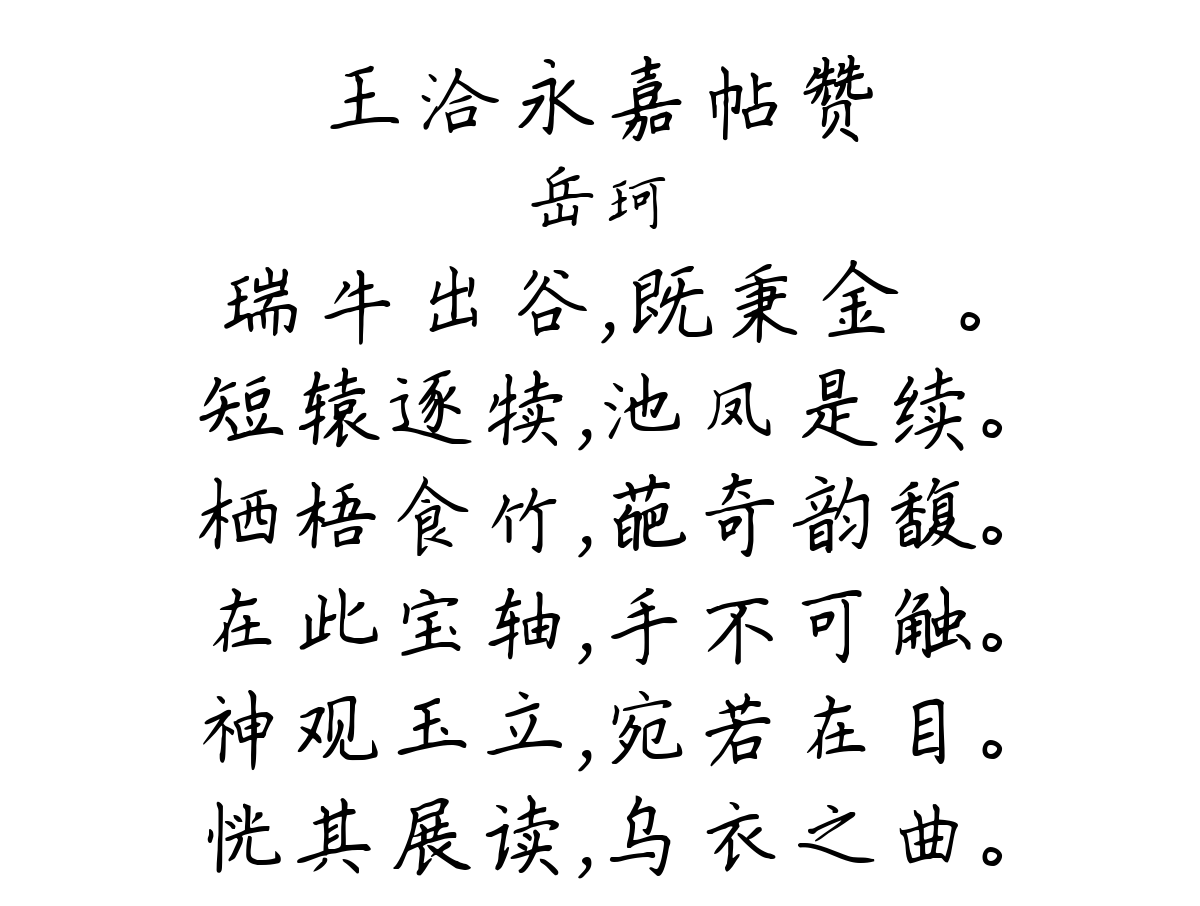 王洽永嘉帖赞
岳珂
瑞牛出谷,既秉金 。
短辕逐犊,池凤是续。
栖梧食竹,葩奇韵馥。
在此宝轴,手不可触。
神观玉立,宛若在目。
恍其展读,乌衣之曲。